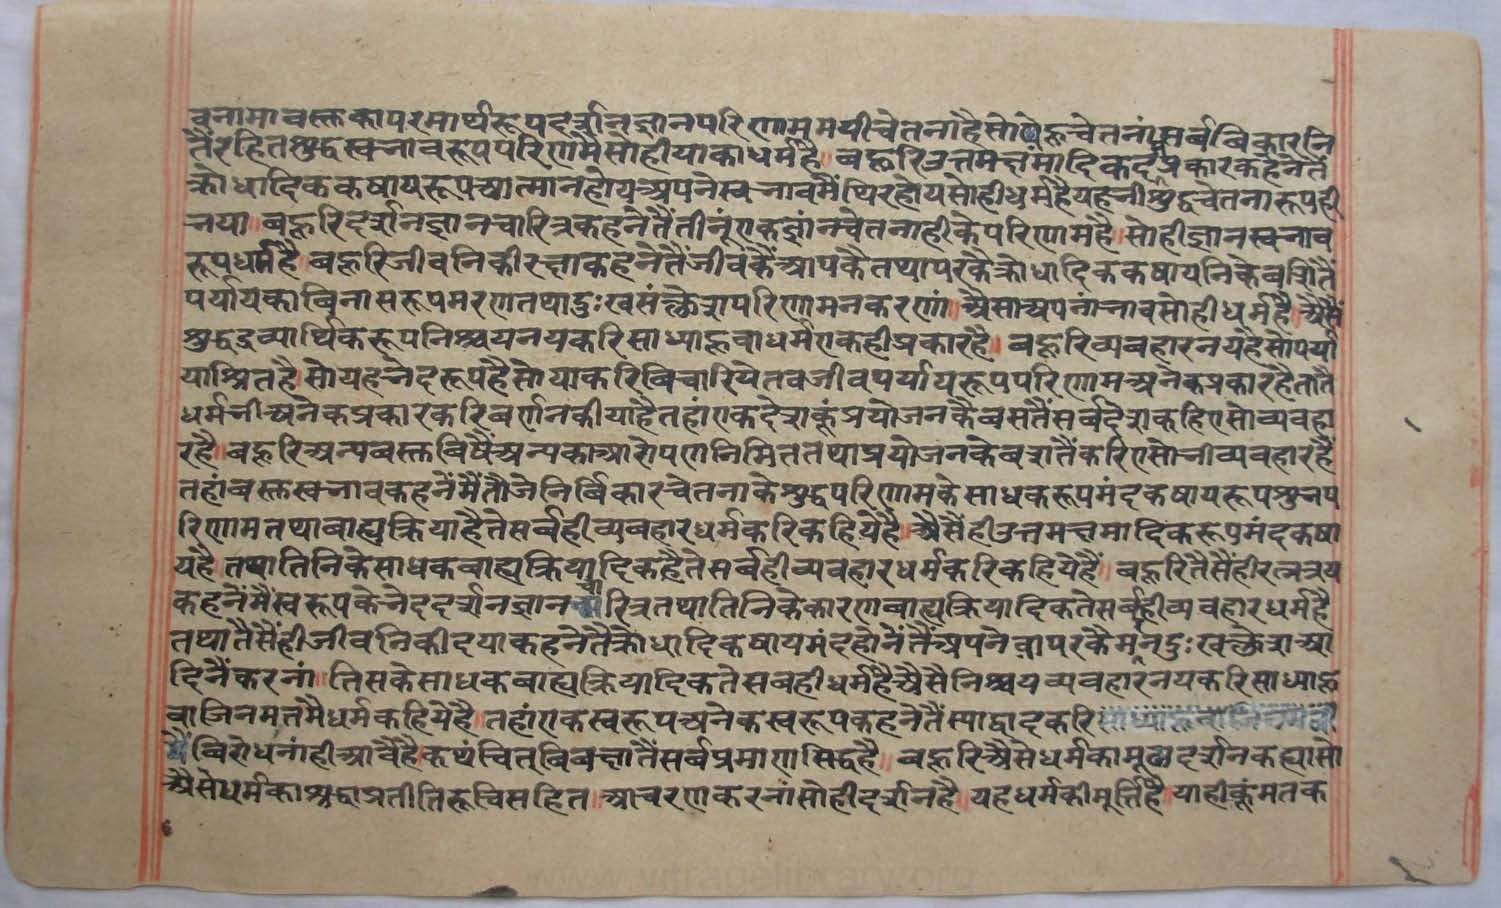 वनामा वस्तुका परमार्थरूप दर्शन ज्ञान परिणाममयी चेतना है सो येहू चेतनां सर्व विकारनि
तैं रहित शुद्ध स्वभावरूप परिणमैं सो ही याका धर्म है॥ बहुरि उत्तमक्षमादिक दश प्रकार कहने तैं
क्रोधादिक कषायरूप आत्मा न होय अपने स्वभावमैं थिर होय सो ही धर्म है यह भी शुद्ध चेतनारूप ही
भया॥ बहुरि दर्शन ज्ञान चारित्र कहने तैं तीनूं एक ज्ञांन चेतनाही के परिणाम है॥ सो ही ज्ञान स्वभाव
रूप धर्म है॥ बहुरि जीवनिकी रक्षा कहने तैं जीवकैं आपकै तथा परकै क्रोधादिक कषायनिके वशि तैं
पर्यायका विनासरूप मरण तथा दुःख संक्लेश परिणामन करणां॥ अैसा अपनां भाव सो ही धर्म है॥ अैसैं
शुद्ध द्रव्यार्थिकरूप निश्चयनय करि साध्या हूवा धर्म एक ही प्रकार है॥ बहुरि व्यवहारनय है सो पर्या
याश्रित है॥ सो यह भेदरूप है सो याकरि विचारिये तब जीव पर्यायरूप परिणाम अनेक प्रकार है तातै
धर्म भी अनेक प्रकार करि वर्णन कीया है तहां एकदेशकूं प्रयोजनकै वसतैं सर्वदेश कहिए सो व्यवहा
र है॥ बहुरि अन्य वस्तु विषैं अन्यका आरोपण निमित्त तथा प्रयोजनके वशतैं करिए सो भी व्यवहार है
तहां वस्तु स्वभाव कहनेमैं तौ जे निर्विकार चेतनाके शुद्ध परिणामके साधकरूप मंद कषायरूप शुभ प
रिणाम तथा बाह्य क्रिया है ते सर्व ही व्यवहार धर्म करि कहिये है॥ अैसैं ही उत्तमक्षमादिकरूप मंद कषा
य है तथा तिनिके साधक बाह्य क्रियादिक है ते सर्व ही व्यवहार धर्म करि कहिये है॥ बहुरि तैसैं ही रत्नत्रय
कहनेमैं स्वरूपके भेद दर्शन ज्ञान चारित्र तथा तिनिके कारण बाह्य क्रियादिक ते सर्व ही व्यवहार धर्म है
तथा तैसैं ही जीवनिकी दया कहने तैं क्रोधादि कषाय मंद होनेंतैं अपने वा परकै मरन दुःख क्लेश आ
दि नैं करनां॥ तिसके साधक बाह्य क्रियादिक ते सब ही धर्म है अैसै निश्चय व्यवहारनय करि साध्या हू
वा जिनमतमै धर्म कहिये है॥ तहां एकस्वरूप अनेकस्वरूप कहने तैं स्याद्वाद करि
विरोध नांही आवै है॥ कथंचित विवक्षातैं सर्व प्रमाण सिद्ध है॥ बहुरि अैसे धर्मका मूल दर्शन कह्या सो
अैसे धर्मका श्रद्धा प्रतीति रुचि सहित आचरण करनां सो ही दर्शन है॥ यह धर्मकी मूर्ति है॥ याहीकूं मत क